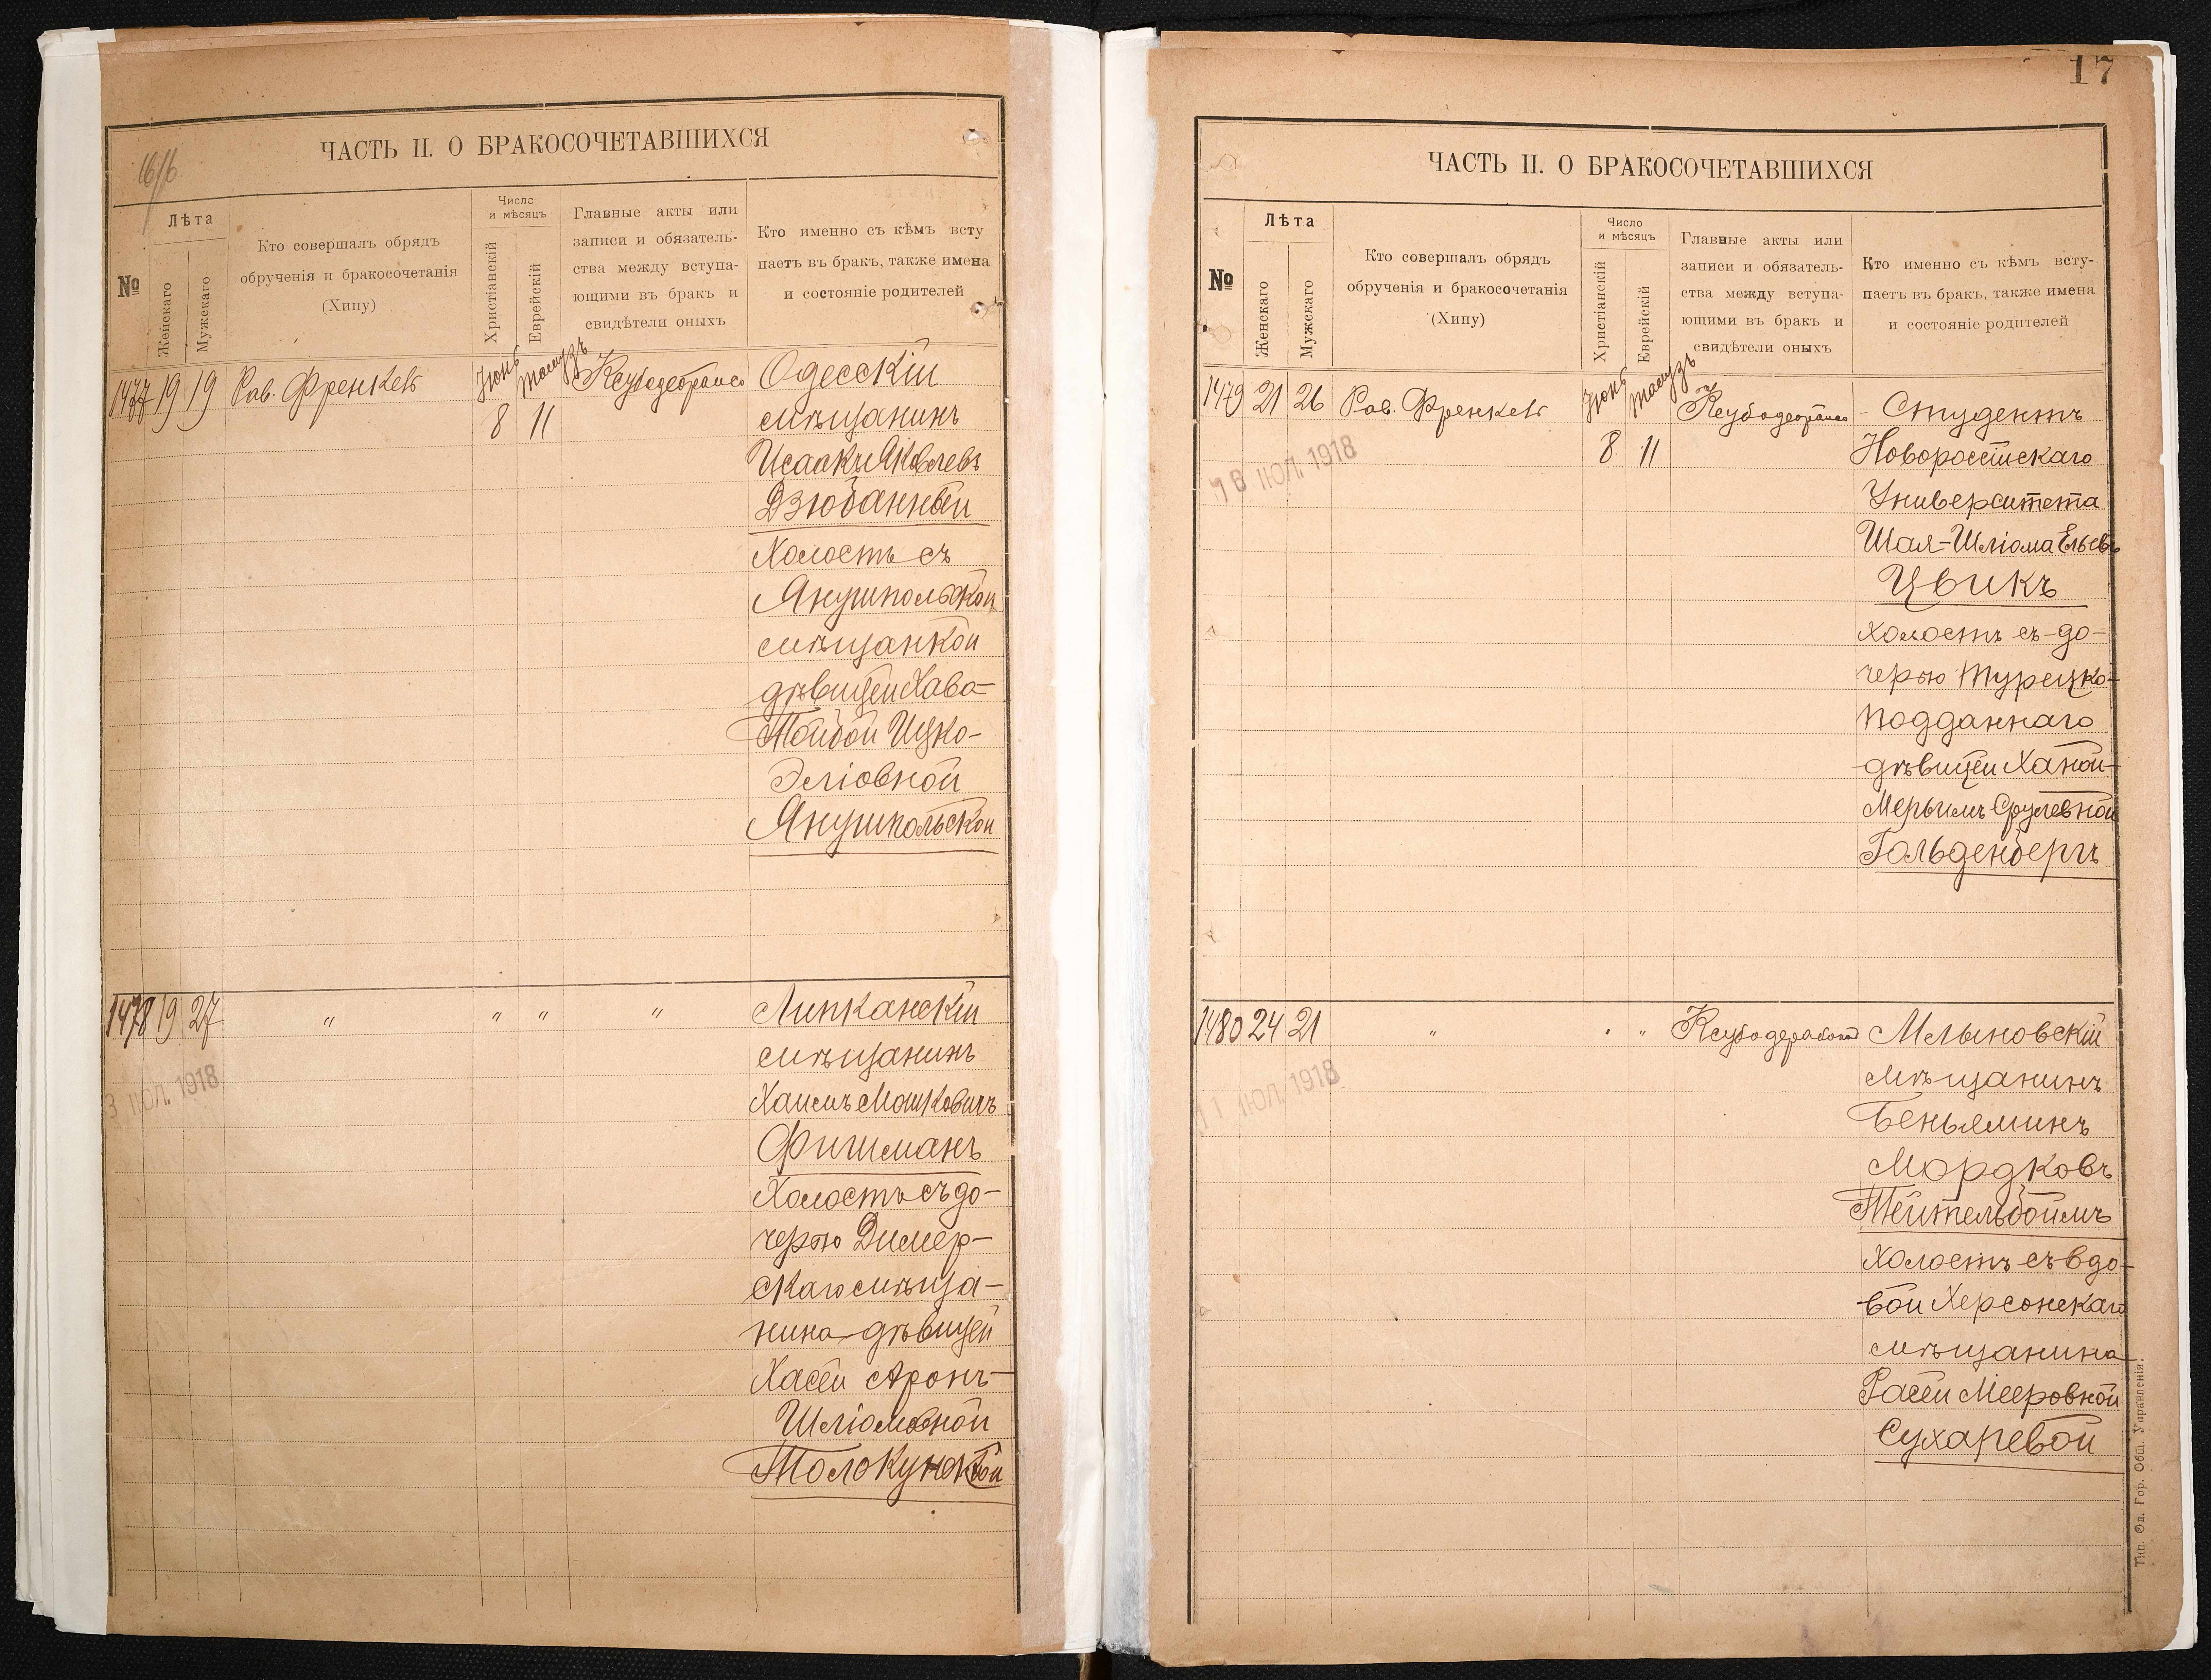 16/16
ЧАСТЬ II. О БРАКОСОЧЕТАВШИХСЯ
№
Лѣта
Женскаго
Мужскаго
Кто совершалъ обрядъ
обрученія и бракосочетанія
(Хипу)
Число
и мѣсяцъ
Христіанскій
Еврейскій
Главные акты или
записи и обязатель-
ства между вступа-
ющими въ бракъ и
свидѣтели оныхъ
Кто именно съ кѣмъ всту
паетъ въ бракъ, также имена
и состояніе родителей
1477 19 19 Рав. Френкель Іюнь Тамузъ Одесскій
8 11 мѣщанинъ
Исаакъ Яковлевъ
Дзюбанный
Холостъ съ
Янушпольской
мѣщанкой
дѣвицей Хава-
Тойбой Ицко-
Эліовной
Янушпольской
1478 19 27 " " " " Липканскій
мѣщанинъ
3 ІЮЛ. 1918
Хаимъ Мошковичъ
Фишманъ
Холостъ съ до-
черью Димер-
скаго мѣща-
нина дѣвицей
Хасей Аронъ-
Шліомовной
17
ЧАСТЬ II. О БРАКОСОЧЕТАВШИХСЯ
№
Лѣта
Женскаго
Мужскаго
Кто совершалъ обрядъ
обрученія и бракосочетанія
(Хипу)
Число
и мѣсяцъ
Христіанскій
Еврейскій
Главные акты или
записи и обязатель-
ства между вступа-
ющими въ бракъ и
свидѣтели оныхъ
Кто именно съ кѣмъ всту-
паетъ въ бракъ, также имена
и состояніе родителей
1479 21 26 Рав. Френкель Іюнь Тамузъ Студентъ
8 11 Новороссійскаго
ІЮЛ. 1918
Университета
Шая-Шліома Ельевъ
Цвикъ
холостъ съ до-
черью Турецко-
подданнаго
дѣвицей Ханой-
Мерьимъ Срулевной
Гольденбергъ
1480 24 21 " " " Млыновскій
мѣщанинъ
11 ІЮЛ. 1918
Беньяминъ
Мордковъ
Тейтельбоймъ
холостъ съ вдо-
вой Херсонскаго
мѣщанина
Расей Мееровной
Сухаревой
Тип. Од. Гор. Общ. Управленія.